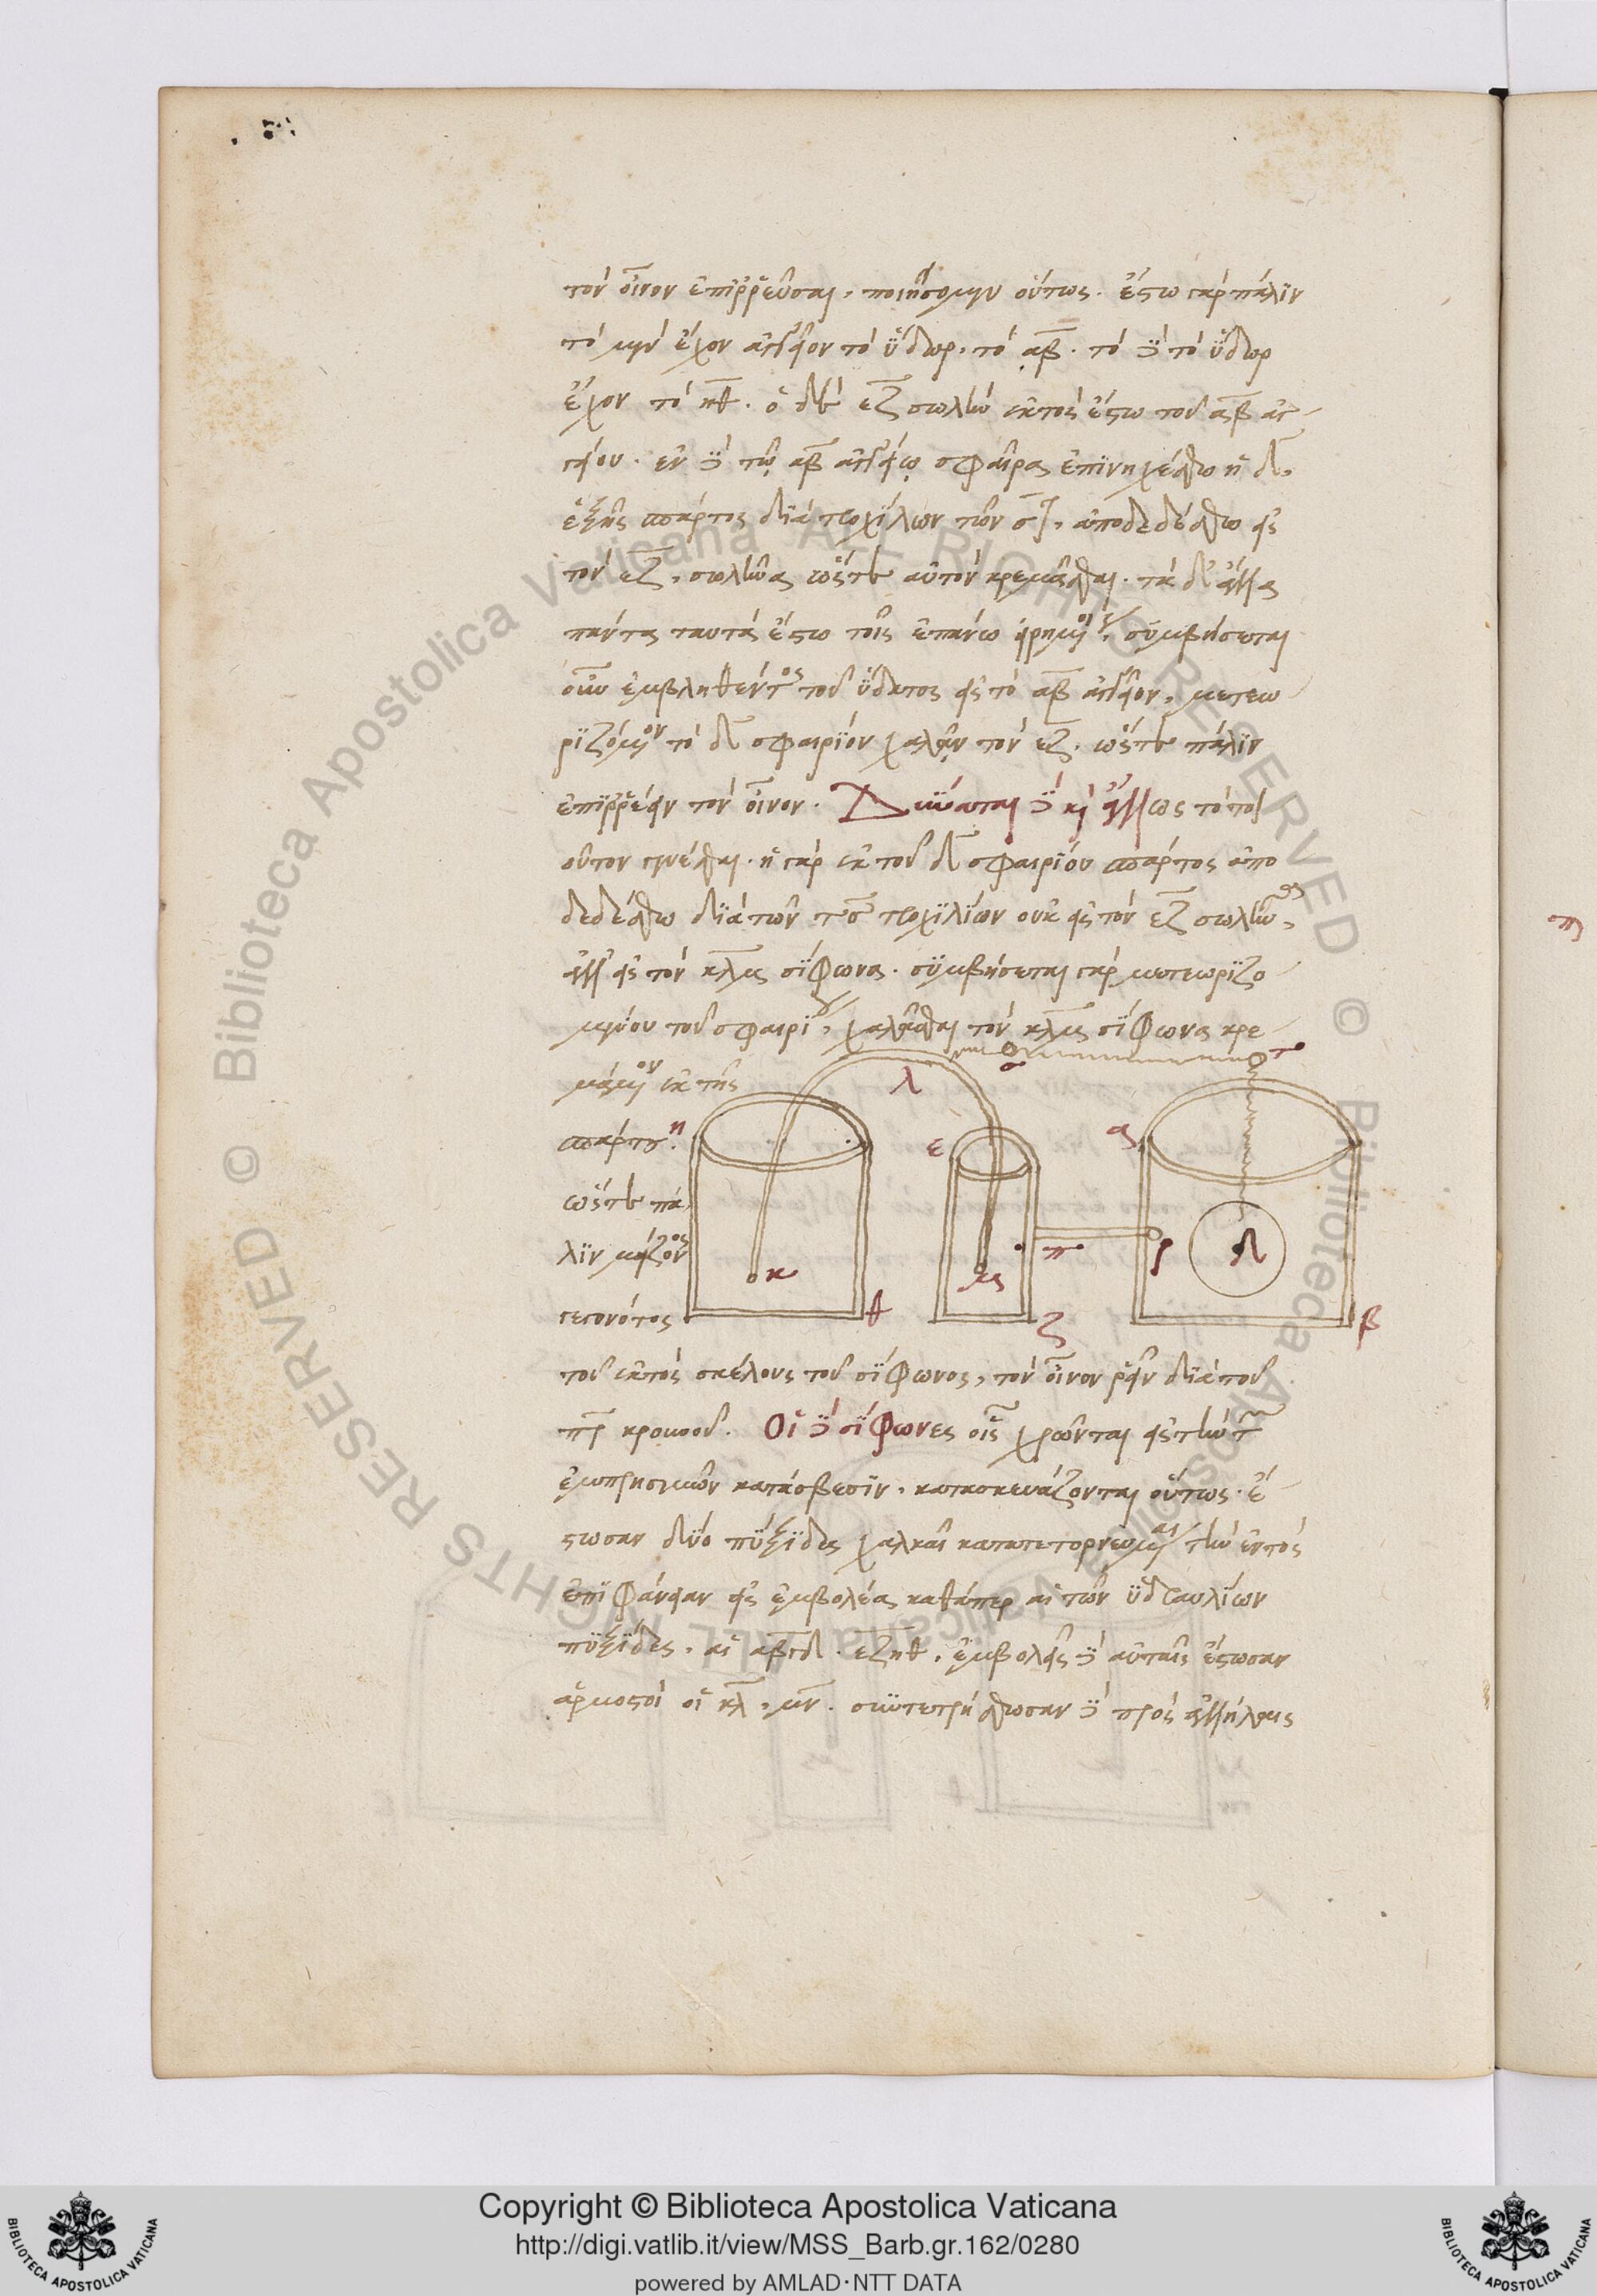 τὸν οἶνον ἐπιῤῥεῦσαι, ποιήσομεν οὕτως. ἔστω γὰρ πάλιν
τὸ μὲν ἔχον ἀγγεῖον τὸ ὕδωρ, τὸ αβ. τὸ δὲ τὸ ὕδωρ
ἔχον τὸ ηθ. ὁ δὲ εζ σωλὴν ἐκτὸς ἔστω τοῦ αβ ἀγ
γείου. ἐν δὲ τῷ αβ ἀγγείῳ σφαῖρα ἐπινηχέσθω ἡ δ,
ἐξ ἧς σπάρτος διὰ τροχίλων τῶν στ, ἀποδεδέσθω εἰς
τὸν εζ, σωλῆνα ὥστε αὐτὸν κρεμᾶσθαι. τὰ δ' ἄλλα
πάντα ταυτὰ ἔστω τοῖς ἐπάνω εἰρημένοις, συμβήσεται
οὖν ἐμβληθέντος τοῦ ὕδατος εἰς τὸ αβ ἀγγεῖον, μετεω
ριζόμενον τὸ δ σφαιρίον χαλᾶν τὸν εζ, ὥστε πάλιν
ἐπιῤῥέειν τὸν οἶνον. Δύναται δὲ καὶ ἄλλως τὸ τοι
οῦτον γενέσθαι. ἡ γὰρ ἐκ τοῦ δ σφαιρίου σπάρτος ἀπο
δεδέσθω διὰ τῶν τσ τροχιλίων οὐκ εἰς τὸν εζ σωλῆνα,
ἀλλ' εἰς τὸν κλμ σίφωνα. συμβήσεται γὰρ μετεωριζο
μένου τοῦ σφαιρίου, χαλᾶσθαι τὸν κλμ σίφωνα κρε
μάμενον ἐκ τῆς
σπάρτου.
ὥστε πά
λιν μείζονος
γεγονότος
τοῦ ἐκτὸς σκέλους τοῦ σίφωνος, τὸν οἶνον ῥεῖν διὰ τοῦ
πρ κρουνοῦ. Οἱ δὲ σίφωνες οἷς χρῶνται εἰς τὴν τῶν
ἐμπρησμῶν κατάσβεσιν, κατασκευάζονται οὕτως. ἔ
στωσαν δύο πυξίδες χαλκαῖ κατατετορνευμέναι τὴν ἐντὸς
ἐπιφάνειαν εἰς ἐμβολέα καθάπερ αἱ τῶν ὑδραυλίων
πυξίδες, αἱ αβγδ. εζηθ, ἐμβολεῖς δὲ αὐταῖς ἔστωσαν
ἁρμοστοὶ οἱ κλ, μν. συντετρήσθωσαν δὲ πρὸς ἀλλήλας
λ
σ
τ
η
ε
α
κ
θ
μ
π
ζ
ρ
δ
β
Copyright © Biblioteca Apostolica Vaticana
http://digi.vatlib.it/view/MSS_Barb.gr.162/0280
powered by AMLAD·NTT DATA
BIBLIOTECA APOSTOLICA VATICANA
BIBLIOTECA APOSTOLICA VATICANA
© Biblioteca Apostolica Vaticana ALL RIGHTS RESERVED © Biblioteca Apostolica Vaticana ALL RIGHTS RESERVED